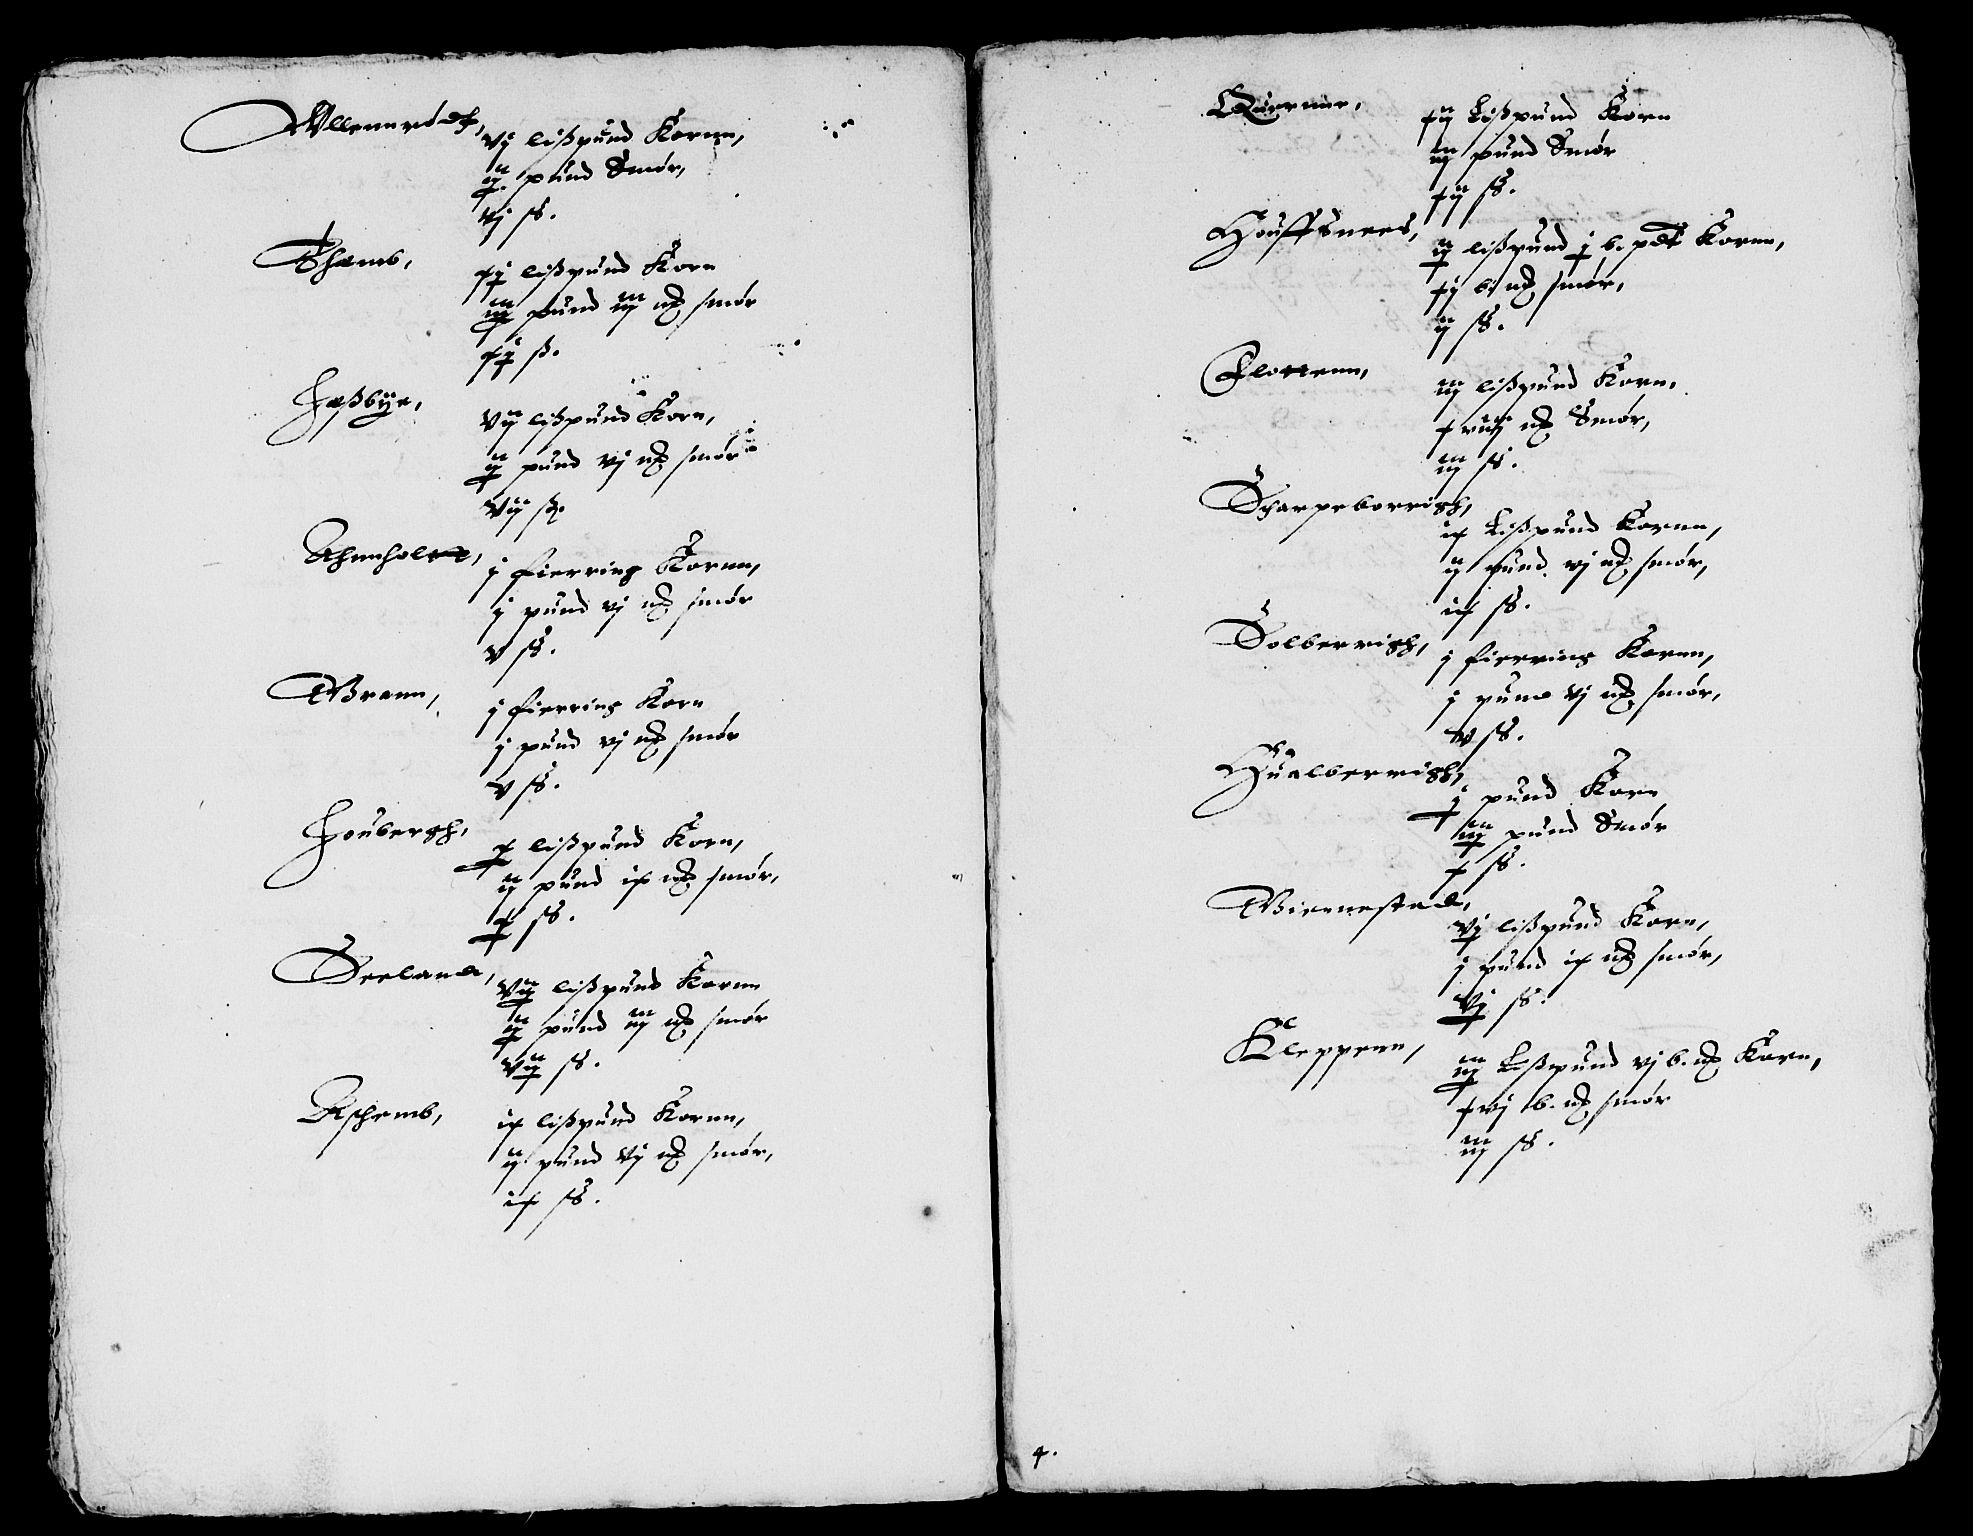 Ullennrød,
vj lißpund Kornn,
ij pund Smør,
vj ß.
Thamb,
xj lißpund Korn
iij pund iij mk smør
xj ß.
Haßbye,
vij lißpund Korn,
ij pund vj mk smør
vij ß.
Ahnholtt,
j fierring Kornn,
j pund vj mk smør
v ß.
Wrann,
j fierring Korn
j pund vj mk smør
v ß.
Houbergh,
x lißpund Korn,
ij pund ix mk smør,
x ß.
Seeland,
vij lißpund Kornn
ij pund iij mk smør
vij ß.
Aschemb,
ix lißpund Kornn,
ij pund vj mk smør,
ix ß.
Quernne,
xij Lißpund Korn
iij pund Smør
xij ß.
Houffsnees,
ij lißpund j b. pdt Kornn,
xij b. mk smør,
ij ß.
Flottenn,
iij lißpund Korn,
xviij mk Smør,
iij ß.
Scharpeborrigh,
ix Lißpund Kornn,
ij pund vj mk smør,
ix ß.
Solberrigh,
j fierring Kornn,
j pund vj mk smør,
v ß.
Hualberrigh,
j pund Korn
iij pund Smør
x ß.
Wiernestad,
vj lißpund Korn,
j pund ix mk smør,
vj ß.
Kleppenn,
iij Lißpund vj b. mk Korn,
xvj b. mk smør
iij ß.
4.